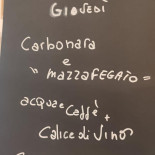 GIOVEDÌ
Carbonara
e
" MAZZAFEGATO =
acqua e Caffè +
Calice di Vino